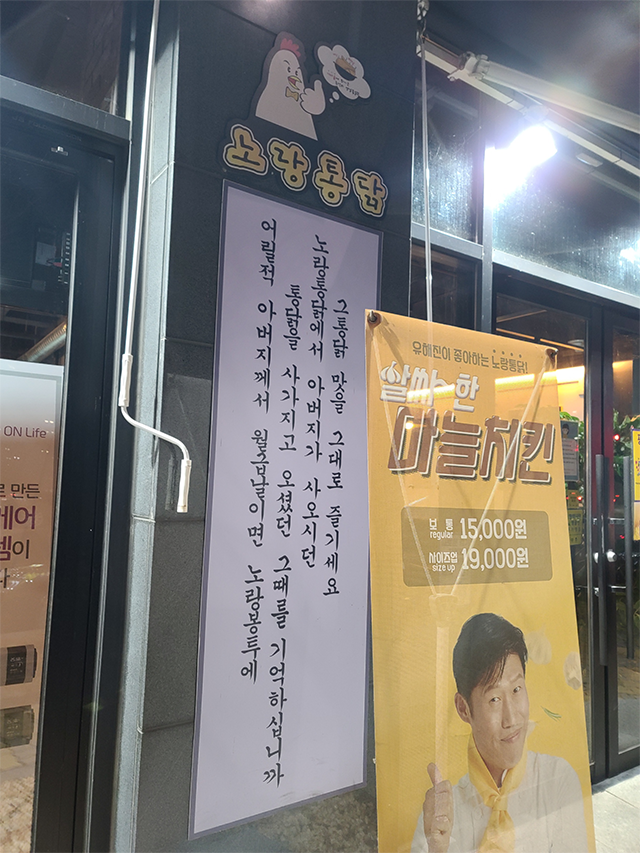 노랑통닭
어릴적 아버지께서 월급날이면 노랑봉투에
통닭을 사가지고 오셨던 그때를 기억하십니까
노랑통닭에서 아버지가 사오시던
그통닭 맛을 그대로 즐기세요
유해진이 좋아하는 노랑통닭!
알싸~한
마늘치킨
보통 15,000원
regular
사이즈업 19,000원
size up
ON Life
로 만든
케어